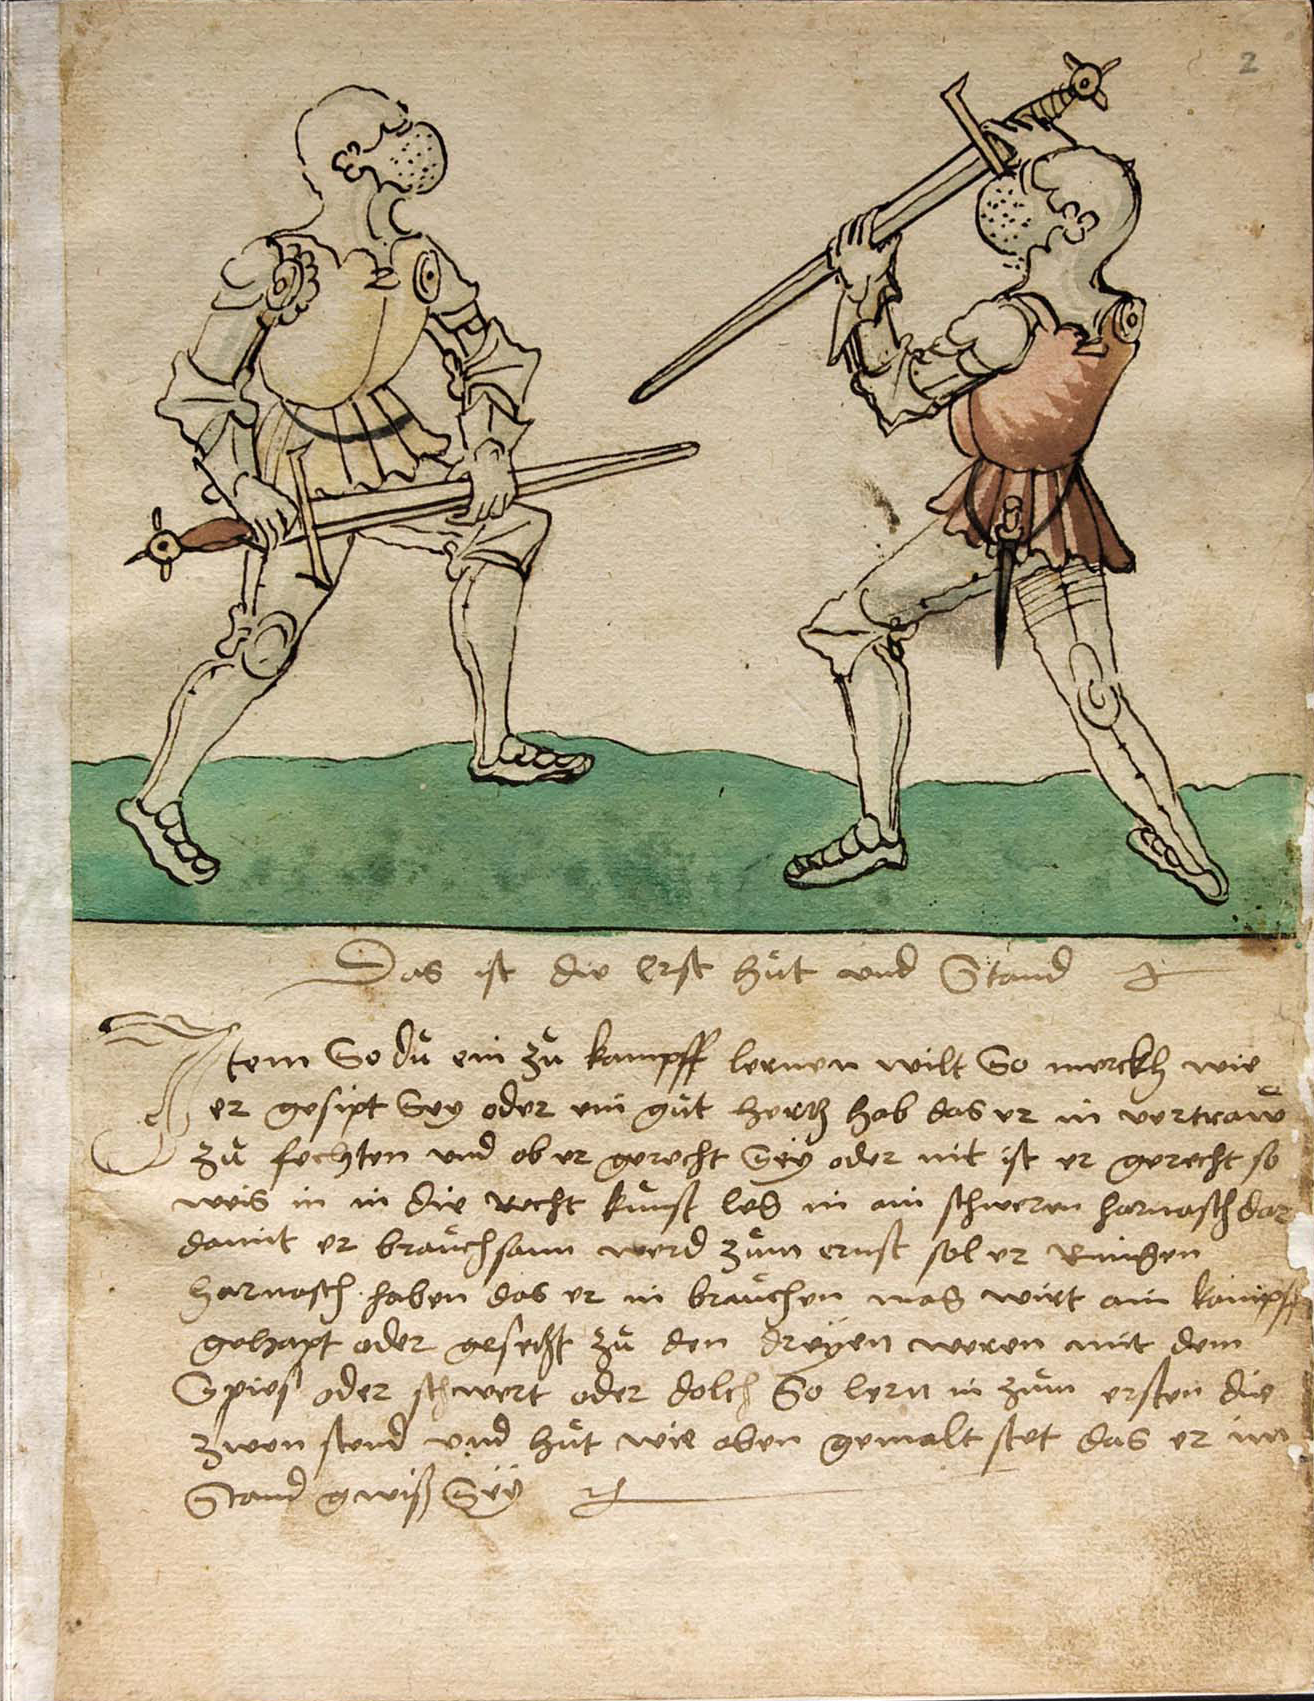 2
Das ist die Erst hůt vnd Stand
Item So dů ein zů kampff lernen wilt So merckh wie
er gesipt Seÿ oder ein gůt hertz hab das er in vertraw
zů fechten vnd ob er gerecht Seÿ oder nit ist er gerecht so
weis in in die Recht kůnst les in ain schweren harnasch dar
damit er braůchsam werd zům ernst sol er Ringen
harnasch haben das er in braůchen mag wirt ain kampff
gehapt oder gesetzt zů den dreÿen weren mit dem
Spies oder schwert oder dolch So lern in zům ersten die
zwen stend vnd hůt wie oben gemalt stet das er im
Stand gwiß Seÿ